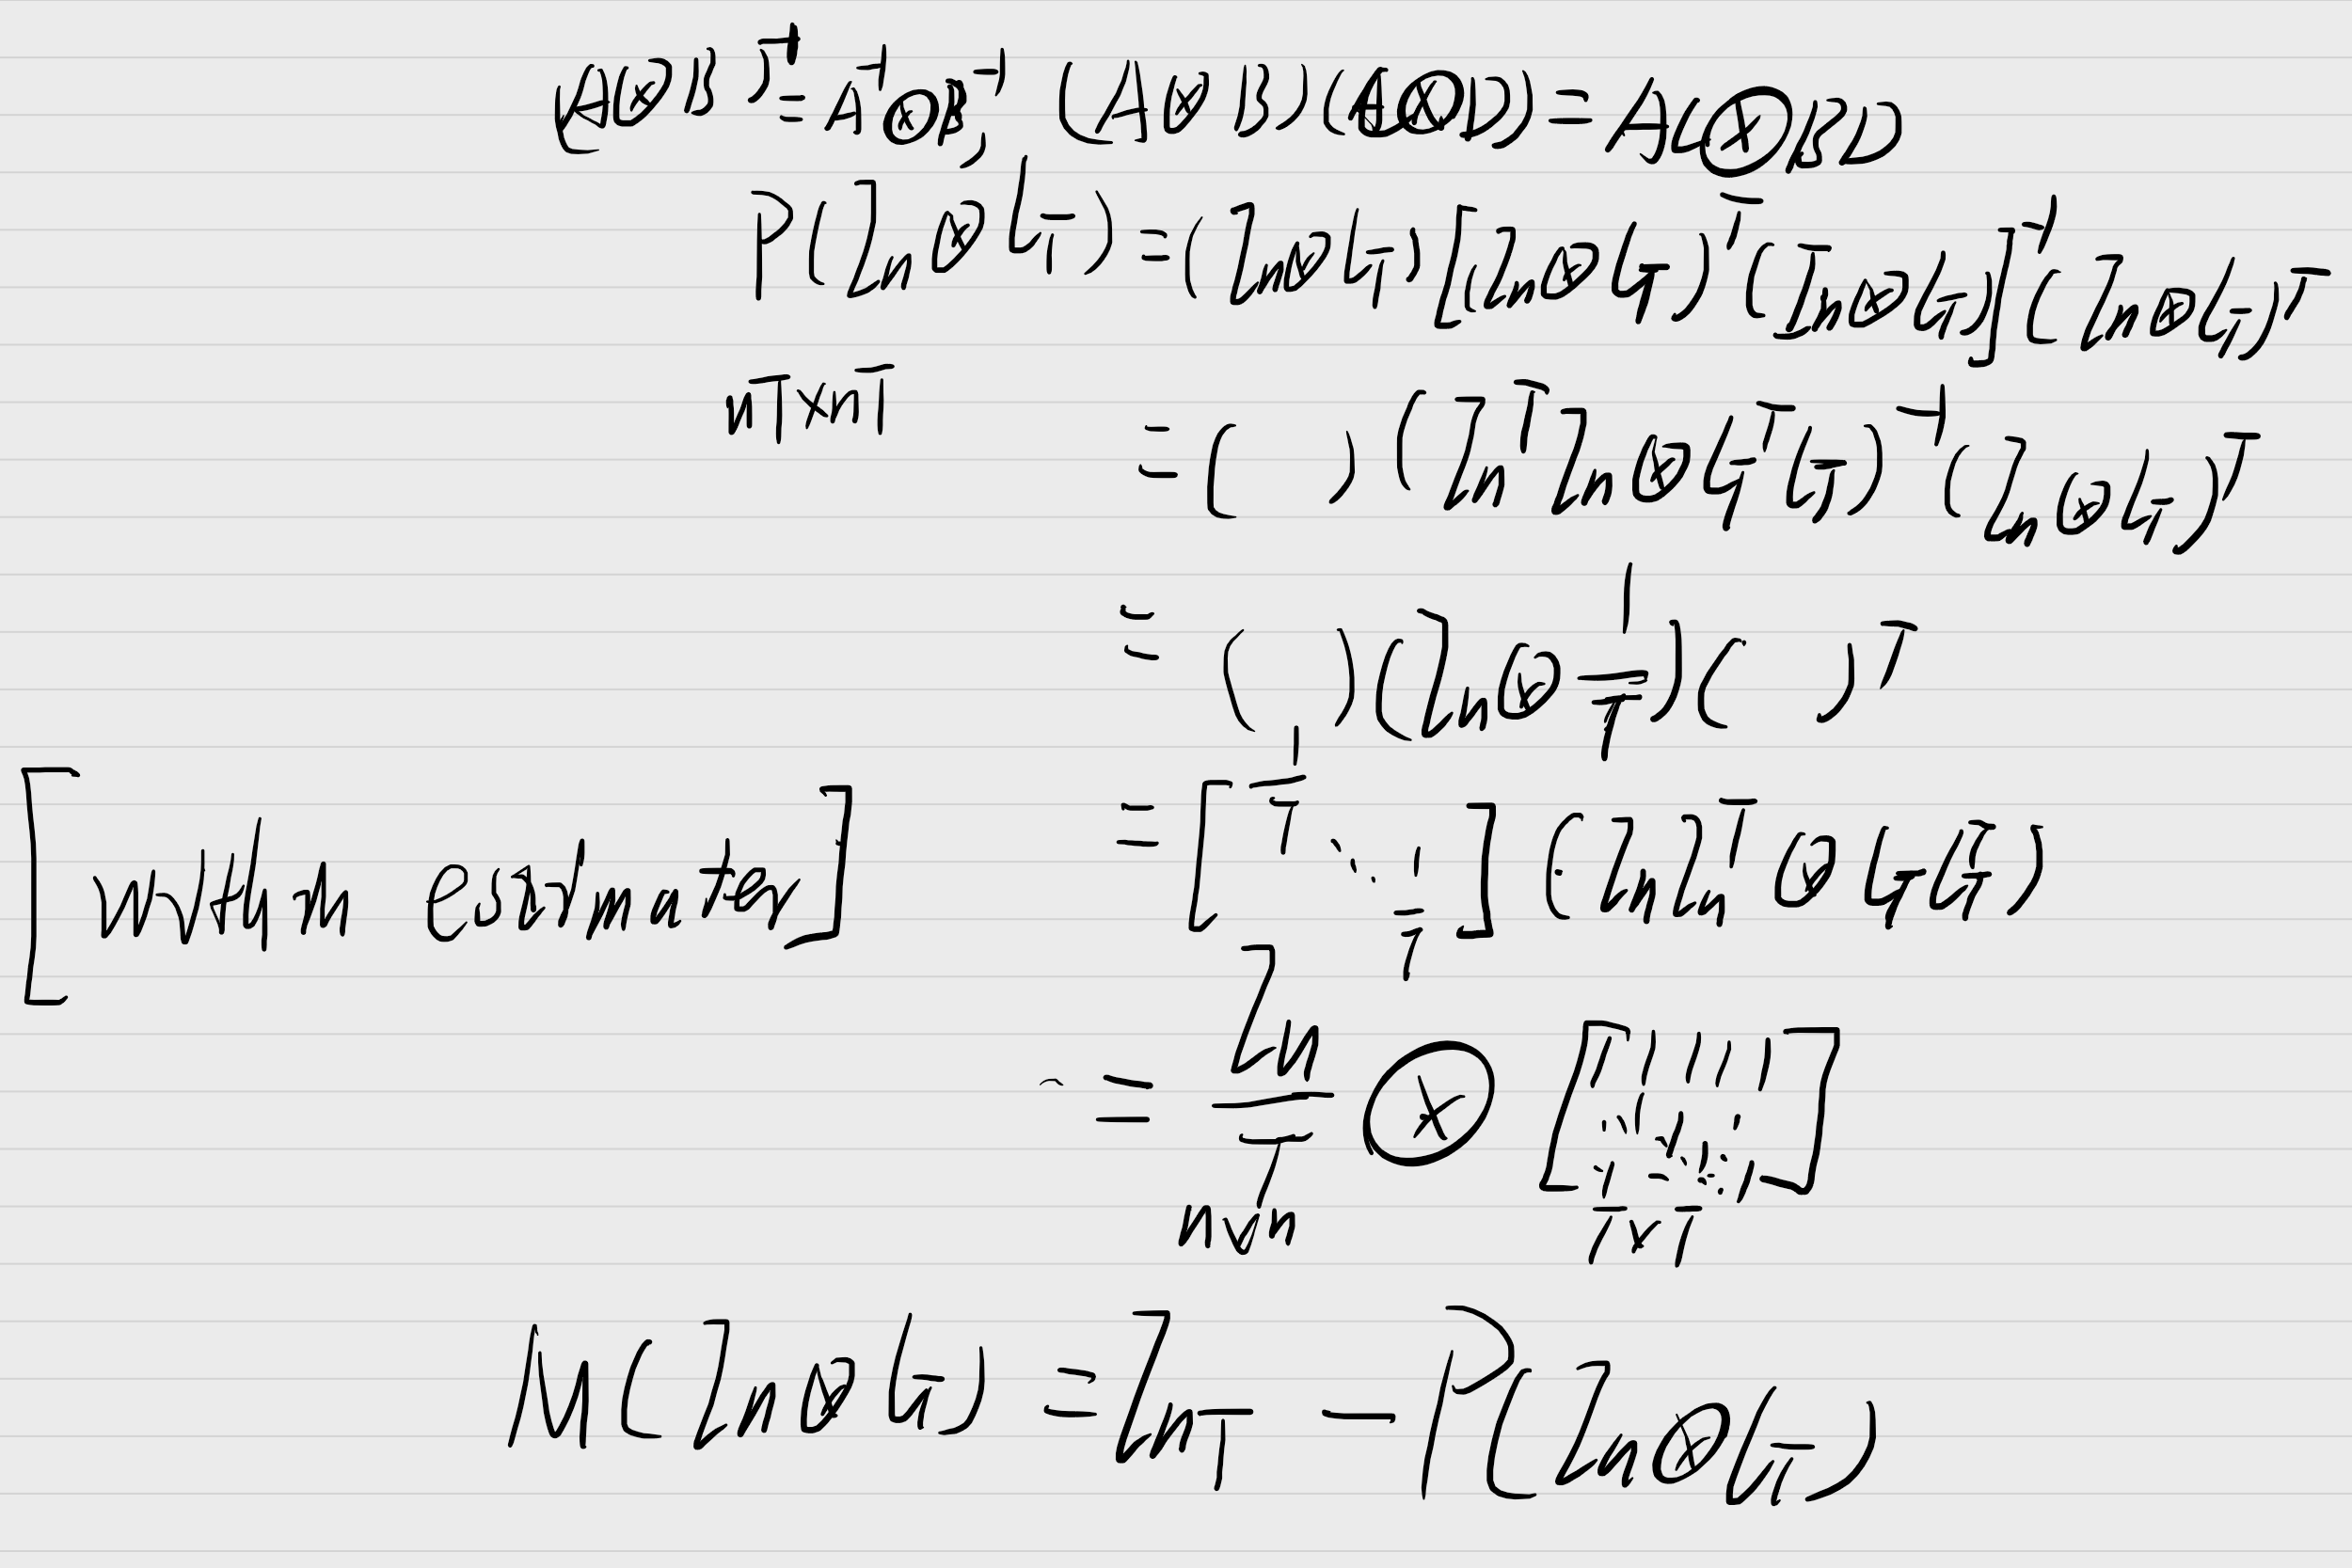 (A⊗B)⁻¹ = A⁻¹⊗B⁻¹, (A⊗B)(C⊗D) = AC⊗BD
P(Iₙ⊗l_T) = (Iₙ⊗l_T)[(Iₙ⊗l_T)ᵀ(Iₙ⊗l_T)]⁻¹(Iₙ⊗l_T)ᵀ
nT×nT
= ( )(IₙᵀIₙ⊗l_Tᵀl_T)⁻¹(Iₙ⊗l_T)ᵀ
= ( )(Iₙ⊗1/T)( )ᵀ
[within estimator]
= [1/T ⋱ 1/T](IₙIₙᵀ⊗l_Tl_Tᵀ)
= Iₙ/T ⊗ [1 1 1 1 1 ⋱ 1 1]
n×n T×T
M(Iₙ⊗l_T) = I_nT − P(Iₙ⊗l_T)